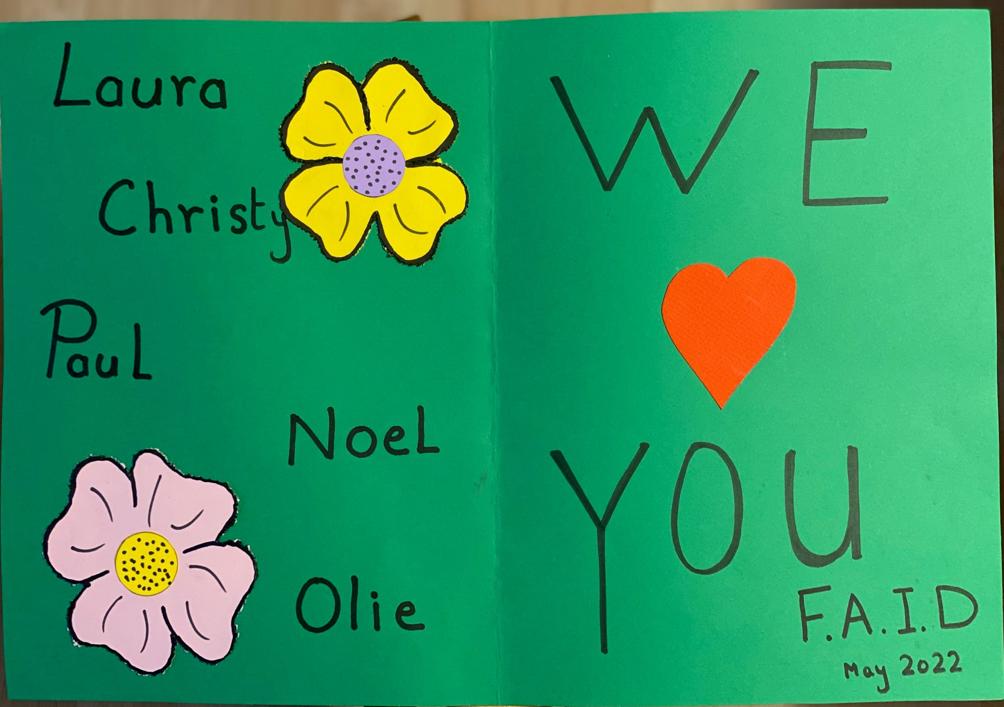 Laura
Christy
Paul
Noel
Olie
WE
YOU
F.A.I.D
May 2022